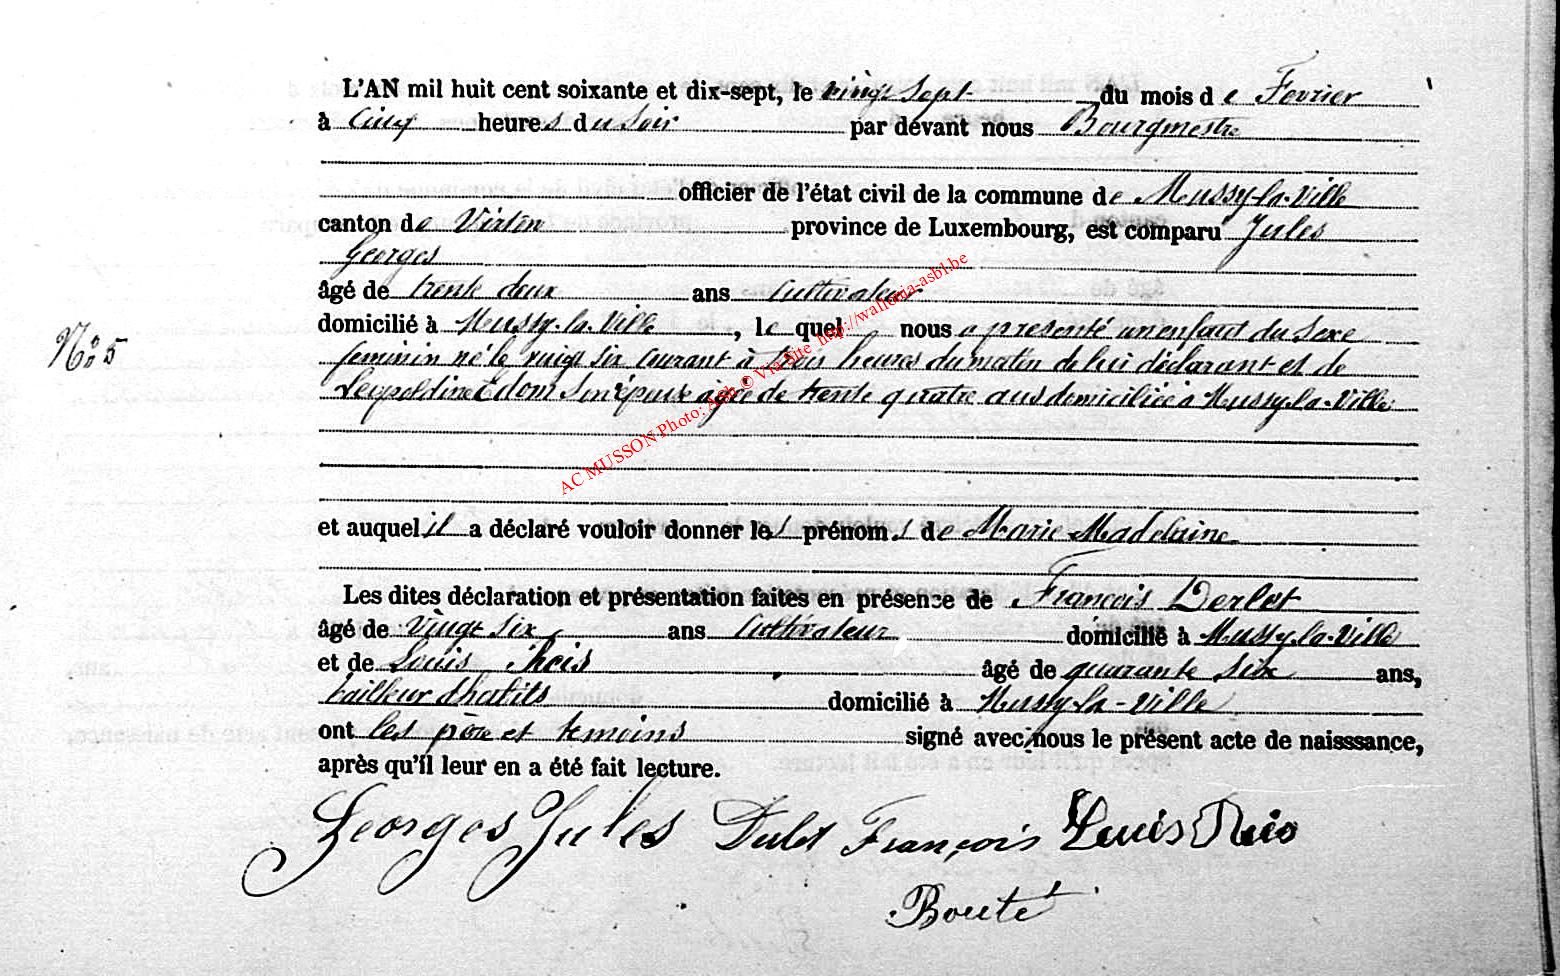 L'AN mil huit cent soixante et dix-sept, le vingt sept du mois de Fevrier
à Cinq heures du Soir par devant nous Bourgmestre
officier de l'état civil de la commune de Mussy-la-Ville
canton de Virton province de Luxembourg, est comparu Jules
Georges
âgé de trente deux ans Cultivateur
domicilié à Mussy-la-Ville, lequel nous a presenté un enfant du Sexe
N° 5
feminin né le vingt six courant à trois heures du matin de lui déclarant et de
Leopoldine Edom Son épouse agée de trente quatre ans domiciliée à Mussy-la-Ville
AC MUSSON Photo: Asbl © Via Site http://wallonia-asbl.be
et auquel il a déclaré vouloir donner les prénoms de Marie Madelaine
Les dites déclaration et présentation faites en présence de François Derlet
âgé de Vingt Six ans Cultivateur domicilié à Mussy-la-Ville
et de Louis âgé de quarante Six ans,
tailleur d'habits domicilié à Mussy-la-Ville
ont les père et temoins signé avec nous le présent acte de naisssance,
après qu'il leur en a été fait lecture.
Georges Jules François Louis